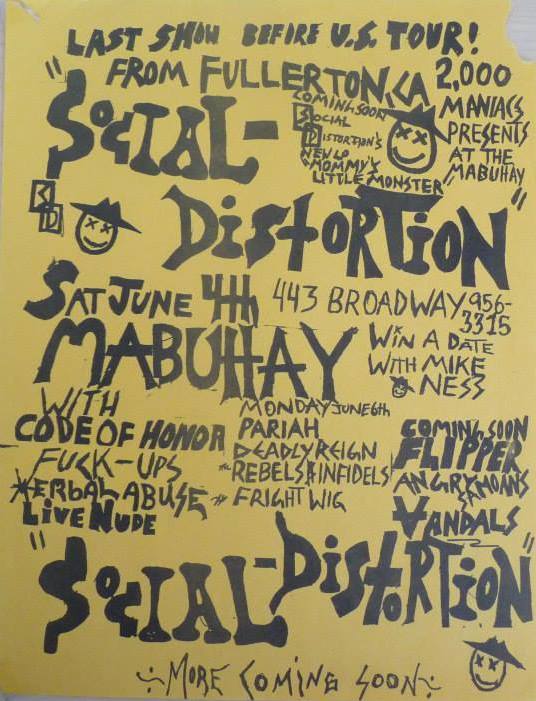 LAST SHOW BEFORE U.S. TOUR!
" FROM FULLERTON, CA
2,000
MANIACS
PRESENTS
AT THE
MABUHAY
"
SOCIAL-
COMING SOON
SOCIAL
DISTORTION'S
NEW LP
"MOMMY'S
LITTLE MONSTER"
SD
DISTORTION
SAT JUNE 4th
443 BROADWAY 956-
3315
MABUHAY
WIN A DATE
WITH MIKE
NESS
WITH
CODE OF HONOR
FUCK-UPS
VERBAL ABUSE
LIVE NUDE
MONDAY JUNE 6th
PARIAH
DEADLY REIGN
REBELS & INFIDELS
FRIGHT WIG
COMING SOON
FLIPPER
ANGRY SAMOANS
VANDALS
"SOCIAL-DISTORTION"
MORE COMING SOON